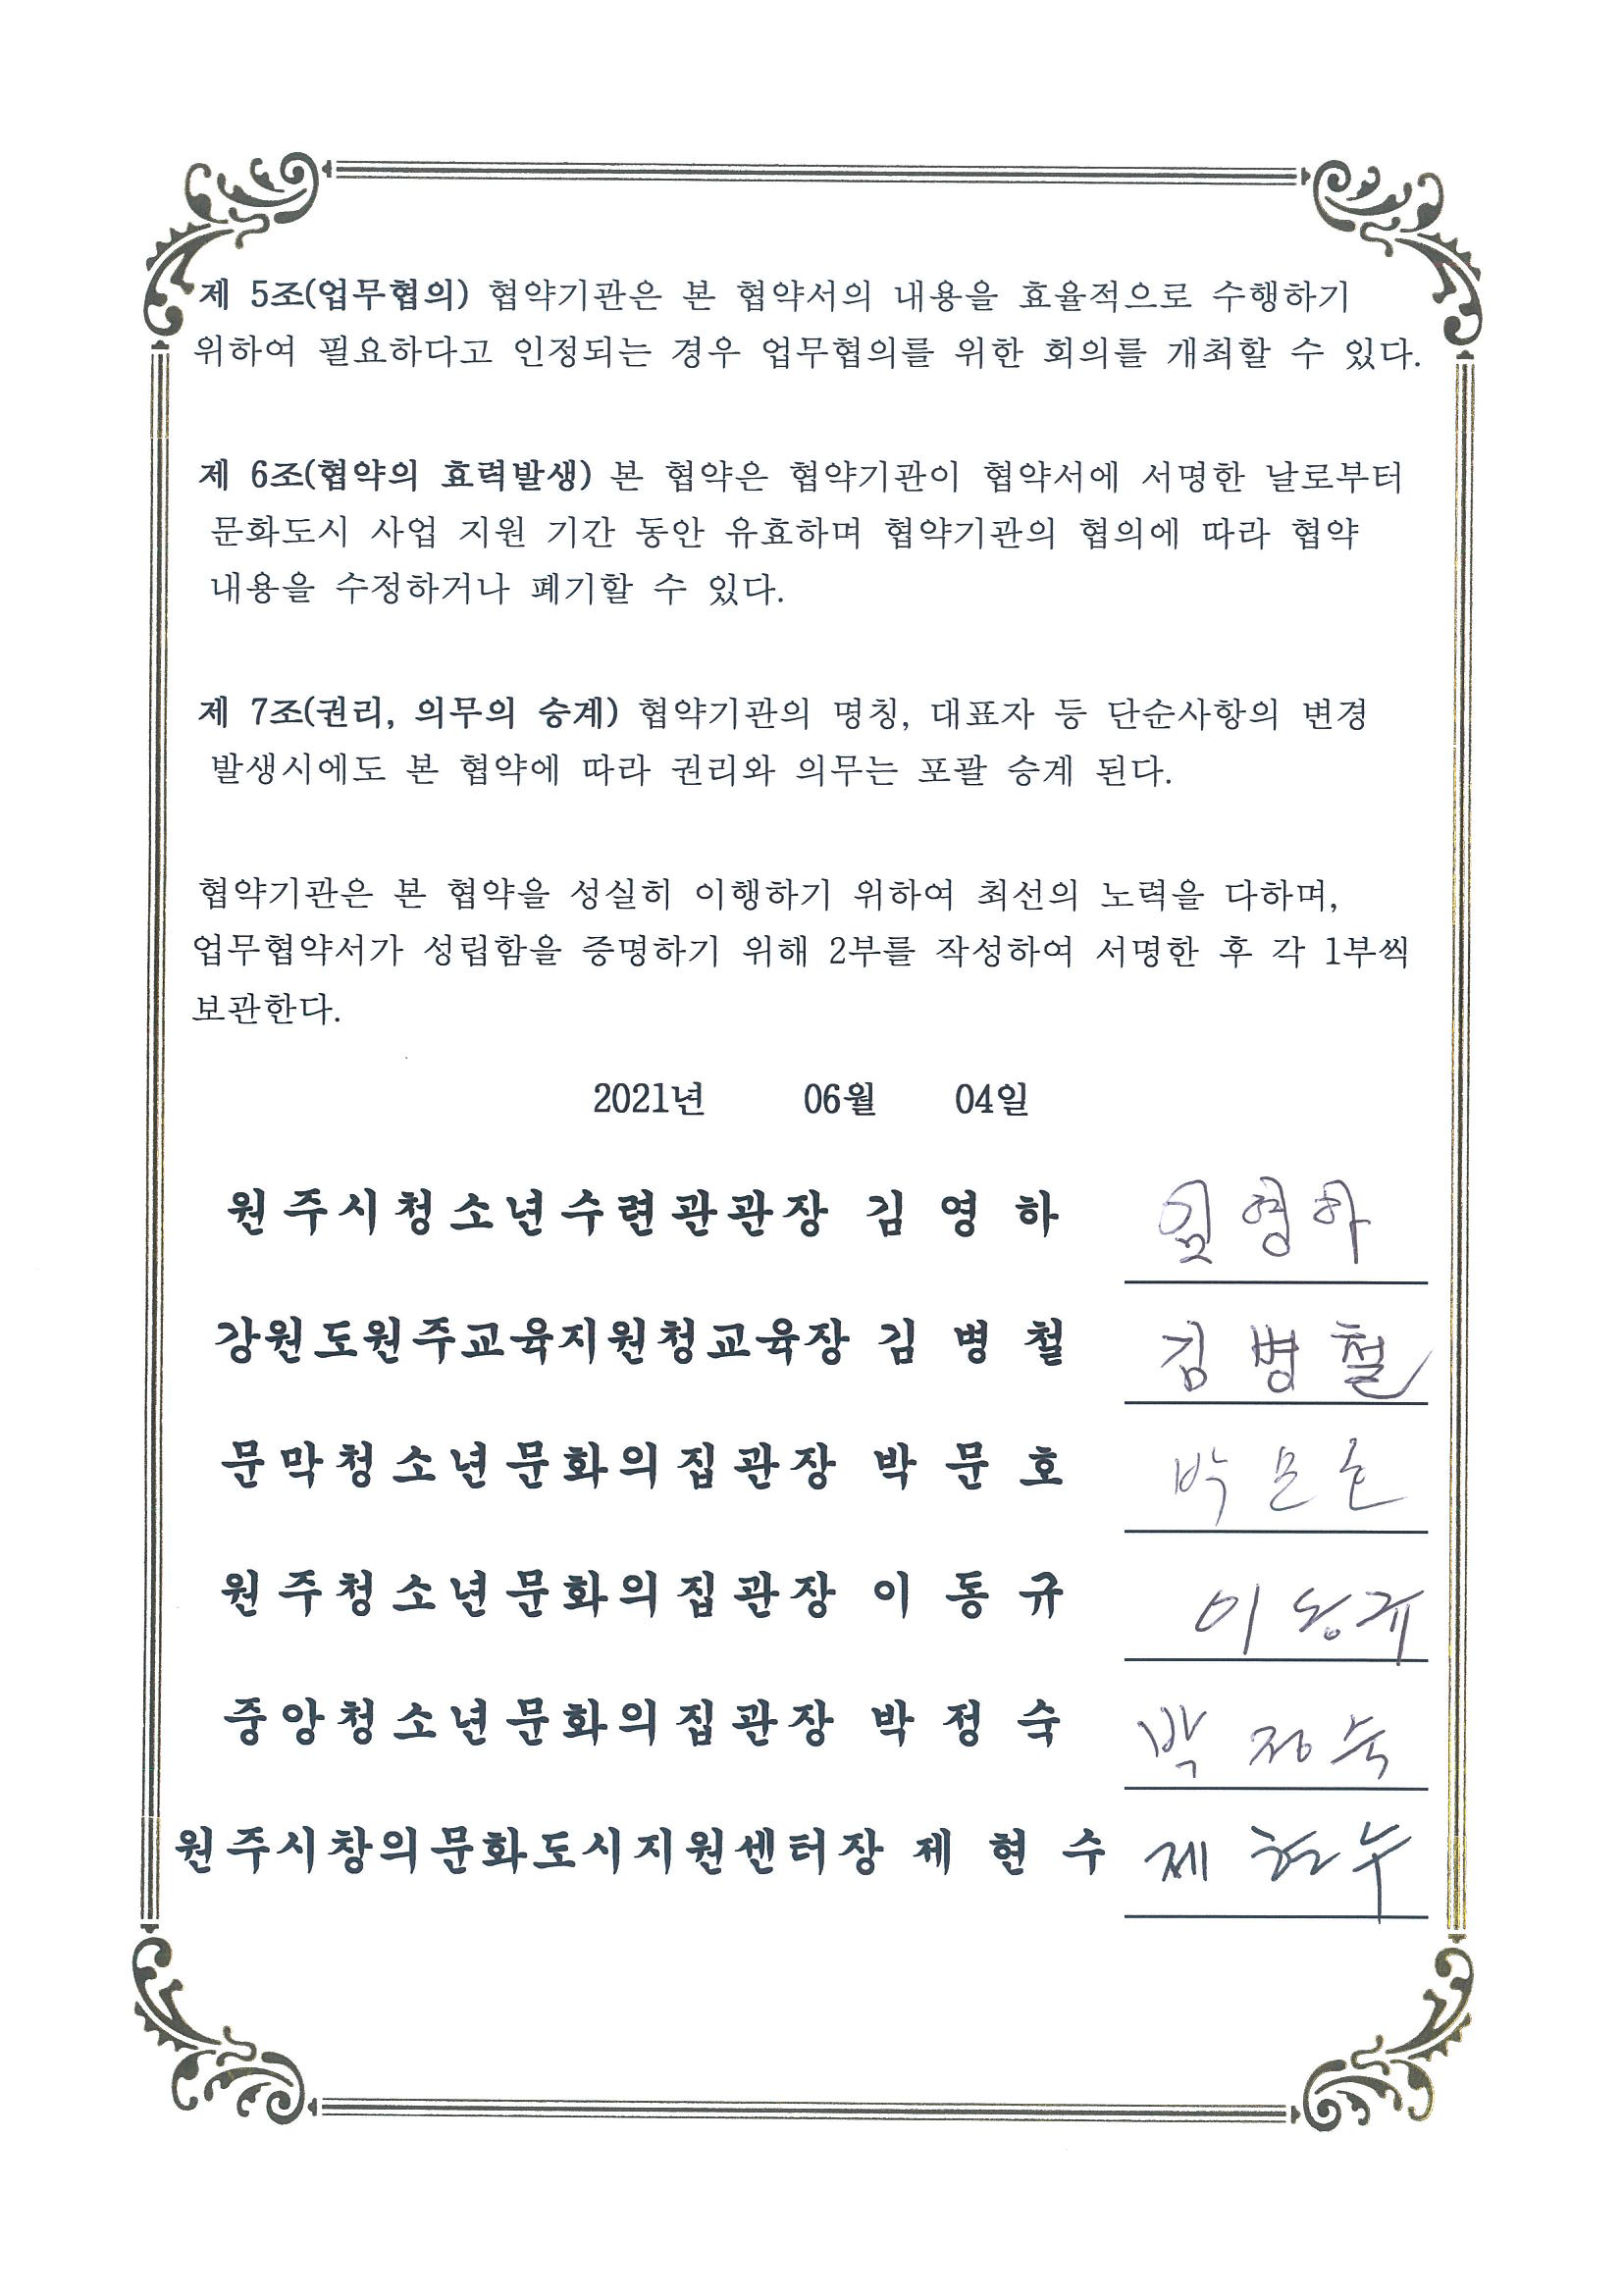 제 5조(업무협의) 협약기관은 본 협약서의 내용을 효율적으로 수행하기
위하여 필요하다고 인정되는 경우 업무협의를 위한 회의를 개최할 수 있다.
제 6조(협약의 효력발생) 본 협약은 협약기관이 협약서에 서명한 날로부터
문화도시 사업 지원 기간 동안 유효하며 협약기관의 협의에 따라 협약
내용을 수정하거나 폐기할 수 있다.
제 7조(권리, 의무의 승계) 협약기관의 명칭, 대표자 등 단순사항의 변경
발생시에도 본 협약에 따라 권리와 의무는 포괄 승계 된다.
협약기관은 본 협약을 성실히 이행하기 위하여 최선의 노력을 다하며,
업무협약서가 성립함을 증명하기 위해 2부를 작성하여 서명한 후 각 1부씩
보관한다.
2021년 06월 04일
원주시청소년수련관관장 김 영 하 김영하
강원도원주교육지원청교육장 김 병 철 김 병 철
문막청소년문화의집관장 박 문 호 박 문 호
원주청소년문화의집관장 이 동 규 이 동규
중앙청소년문화의집관장 박 정 숙 박 정숙
원주시창의문화도시지원센터장 제 현 수 제 현수